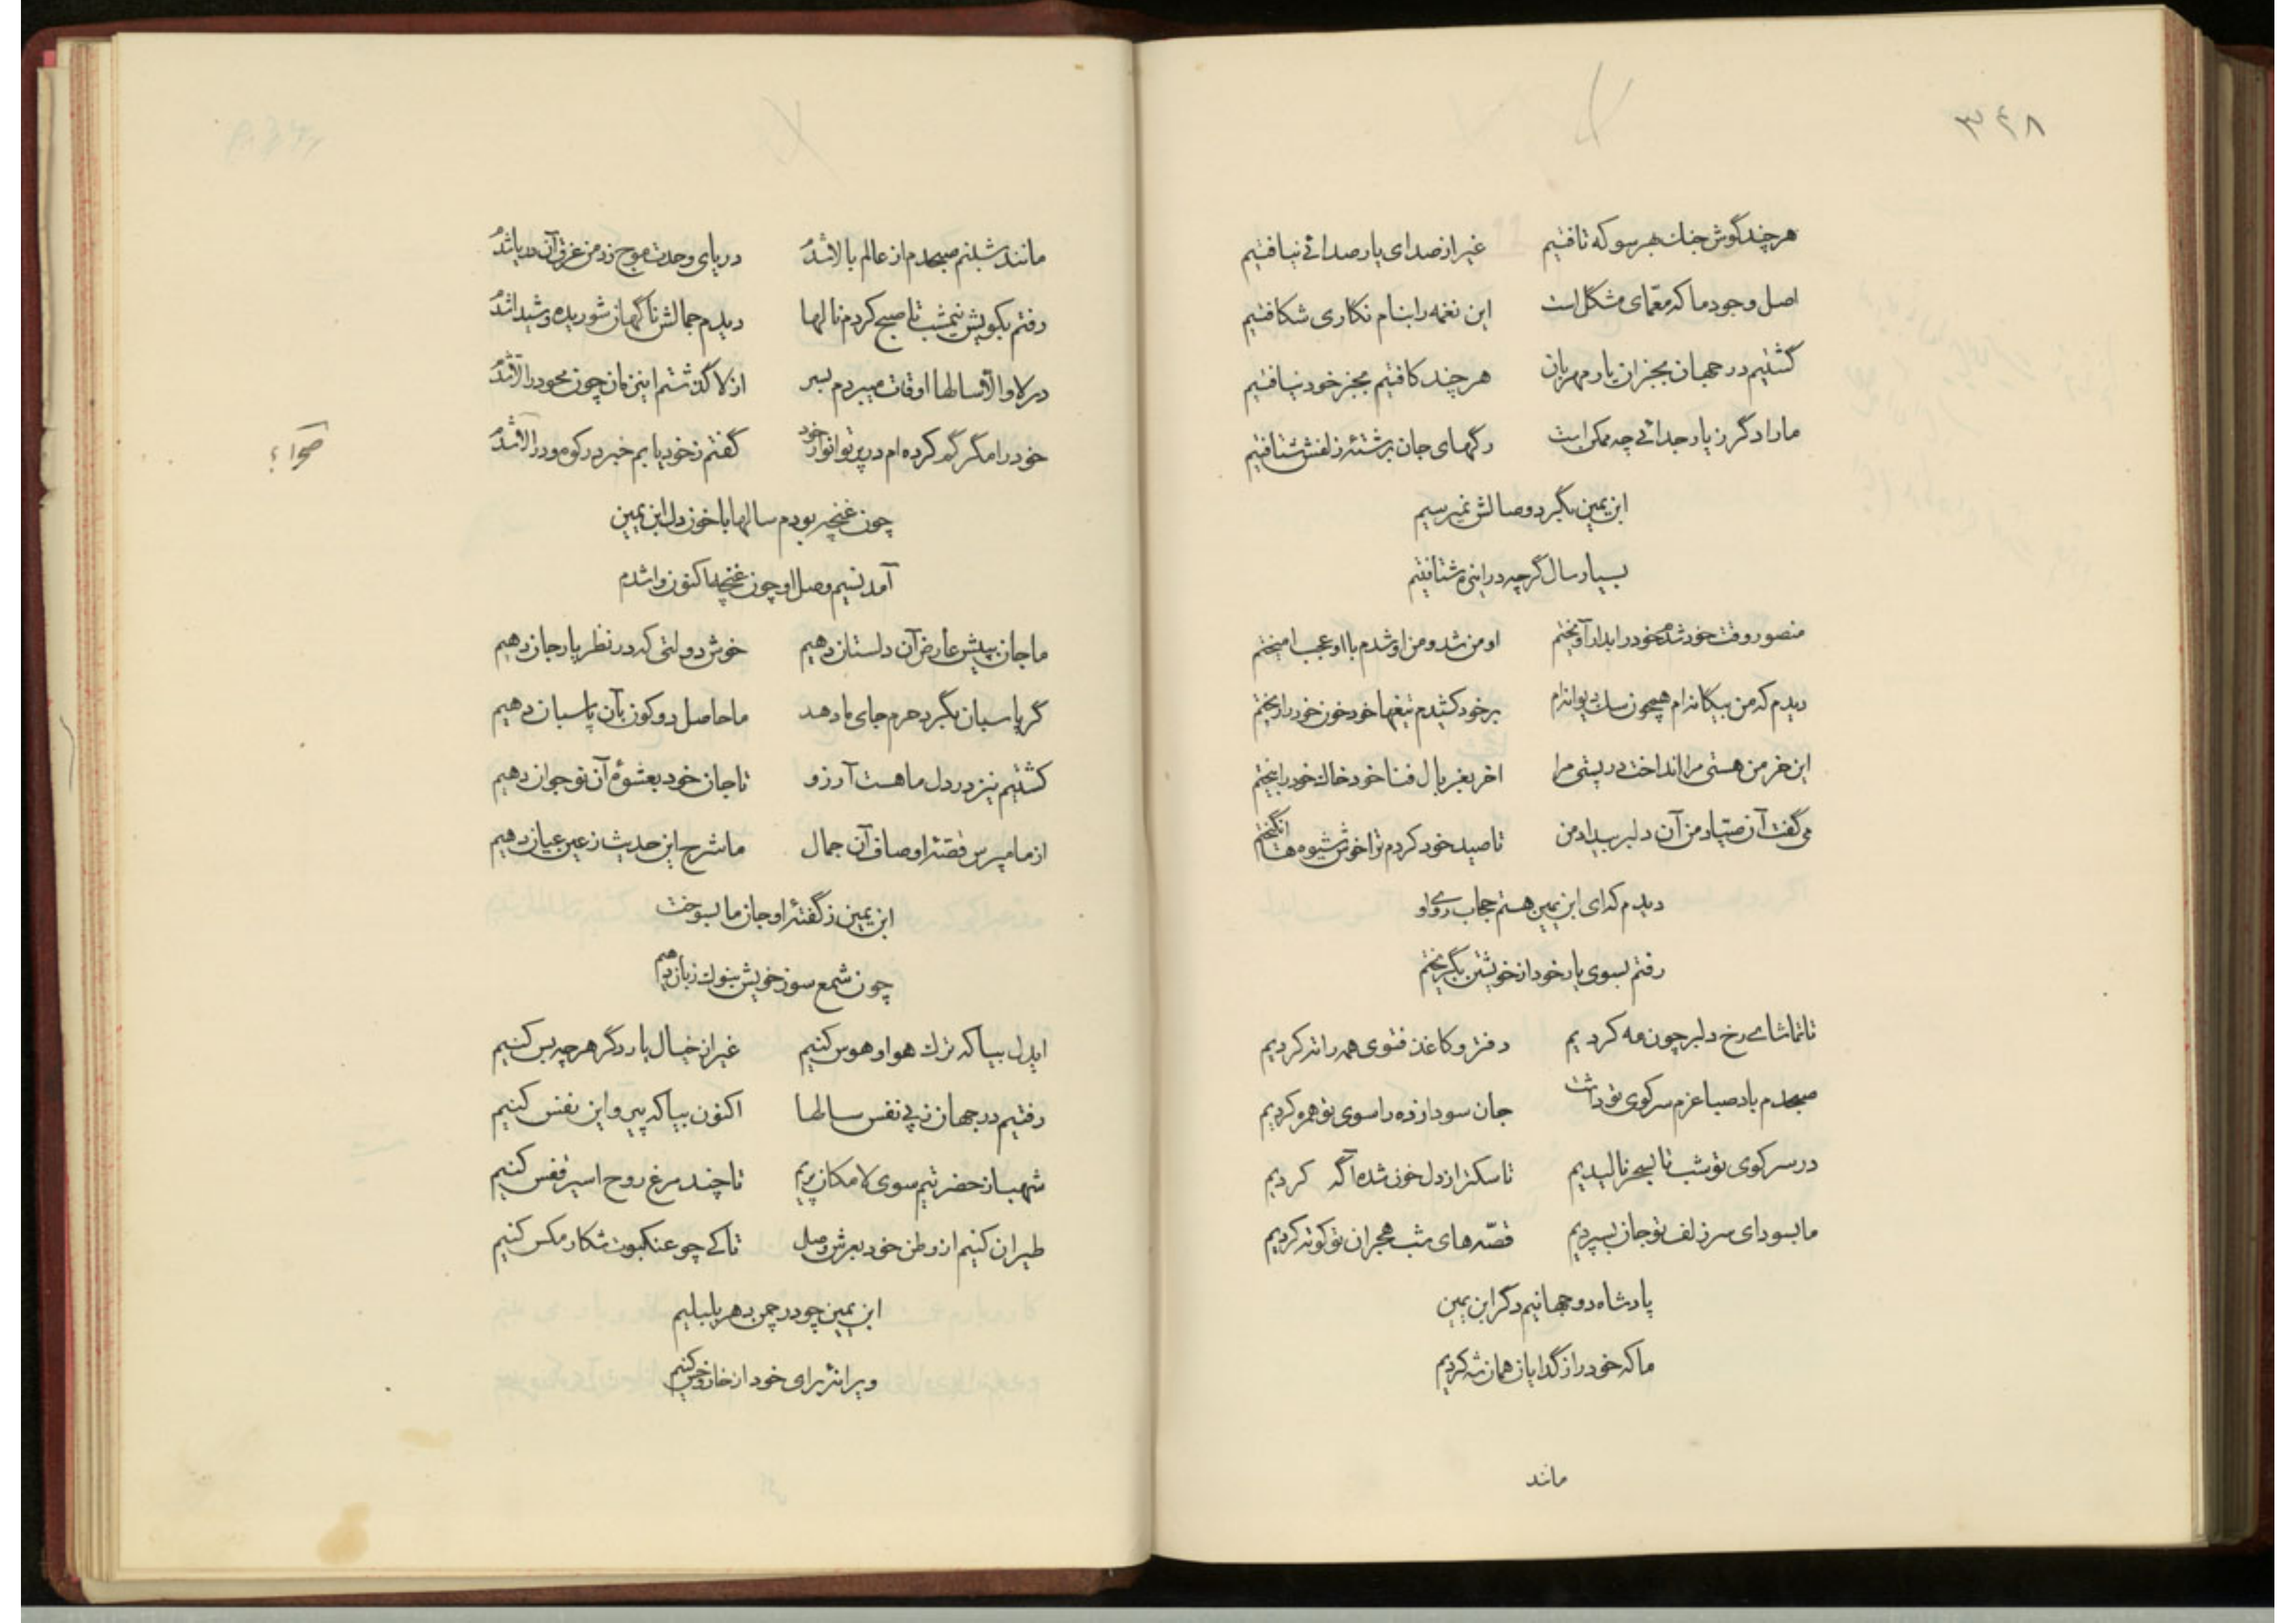 ۳۴۸
هر چند گوش جان بهر سو که تافتیم غیر از صدای یار صدائی نیافتیم
اصل وجود ما که معمّای مشکل است این نغمه را بنام نکاری شکافتیم
گشتیم در جهان بجز آن یار مهربان هر چند کافتیم بجز خود نیافتیم
ما را دگر ز یار جدائی چه ممکن است رگهای جان برشتهٔ زلفش شتافتیم
ابن یمین بگرد وصالش نمیرسیم
بسیار سال گرچه در این ره شتافتیم
منصور وقت خود شدم خود را بدار آویختم او من شد و من او شدم با او عجب امیختم
دیدم که من بیگانه‌ام همچون سک دیوانه‌ام بر خود کشیدم تیغها خود خون خود را ریختم
این خرمن هستی مرا انداخت در پستی مرا اخر بغربال فنا خود خاک خود را بیختم
می گفت آن صیّاد من آن دلبر بیداد من تا صید خود کردم ترا خوش شیوه ها انگیختم
دیدم که ای ابن یمین هستم حجاب روی او
رفتم بسوی یار خود از خویشتن بگریختم
تا تماشای رخ دلبر چون مه کردیم دفتر و کاغذ فتوی همه را ته کردیم
صبحدم باد صبا عزم سر کوی تو داشت جان سودازده را سوی تو همره کردیم
در سر کوی تو شب تا بسحر نالیدیم تا سکت از دل خون شده آگه کردیم
ما بسودای سر زلف تو جان بسپردیم قصّه‌های شب هجران تو کوته کردیم
پادشاه دو جهانیم دگر ابن یمین
ما که خود را ز گدایان همان شه کردیم
مانند
مانند شبنم صبحدم از عالم بالا شدم دریای وحدت موج زد من غرق آن دریا شدم
رفتم بکویش نیمشب تا صبح کردم نالها دیدم جمالش ناگهان شوریده و شیدا شدم
در لا و الّا سالها اوقات میبردم بسر از لا گذشتم این زمان چون محو در الّا شدم
خود را مگر گم کرده‌ام در پرتو انوار خود گفتم ز خود یابم خبر در کوه و در الا شدم
صحرا ؟
چون غنچه بودم سالها با خون دل ابن یمین
آمد نسیم وصل او چون غنچه اکنون وا شدم
ما جان بپیش عارض آن دلستان دهیم خوش دولتی که در نظر یار جان دهیم
گر پاسبان بگرد حرم جای ما دهد ما حاصل دو کون بآن پاسبان دهیم
کشتیم نیز در دل ما هست آرزو تا جان خود بعشوهٔ آن نوجوان دهیم
از ما مپرس قصّهٔ اوصاف آن جمال ما شرح این حدیث ز عین عیان دهیم
ابن یمین ز گفتهٔ او جان ما بسوخت
چون شمع سوز خویش بنوک زبان دهیم
ایدل بیا که ترک هوا و هوس کنیم غیر از خیال یار دگر هرچه بس کنیم
رفتیم در جهان ز پی نفس سالها اکنون بیا که پیروی این نفس کنیم
شهباز حضرتیم سوی لامکان پریم تا چند مرغ روح اسیر قفس کنیم
طیران کنیم از وطن خود بعرش وصل تا کی چو عنکبوت شکار مکس کنیم
ابن یمین چو در چمن دهر بلبلیم
ویرانهٔ سرای خود از خار و خس کنیم